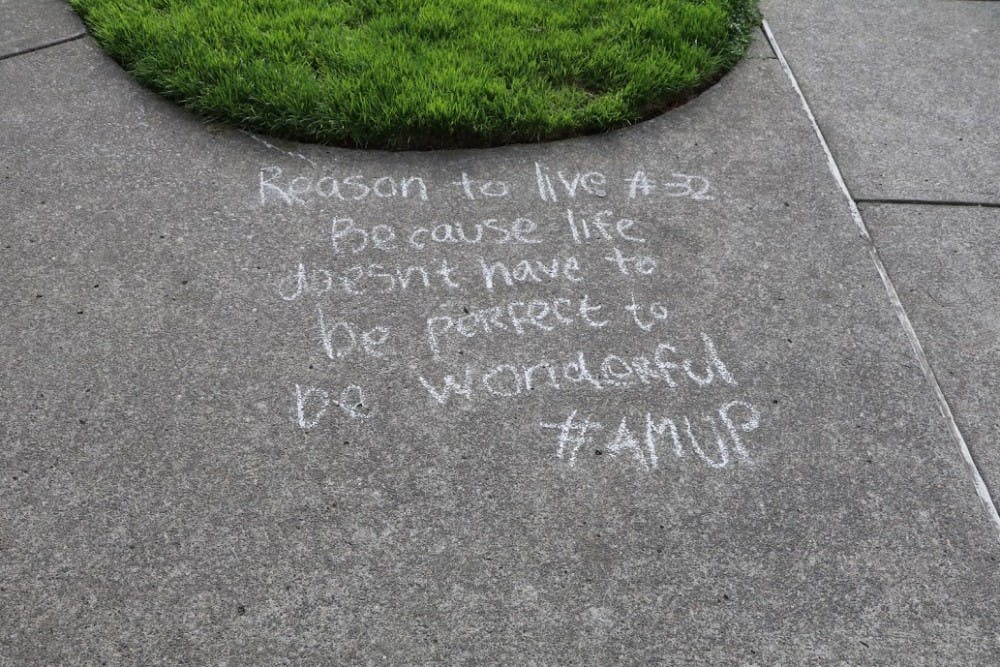 Reason to live #32
Because life
doesnt have to
be perfect to
be wonderful
#AMUP